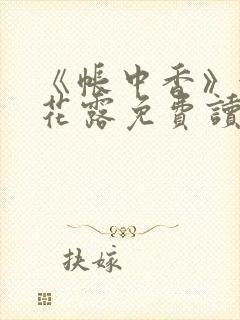 《帳中香》
花露免費讀
扶嫁